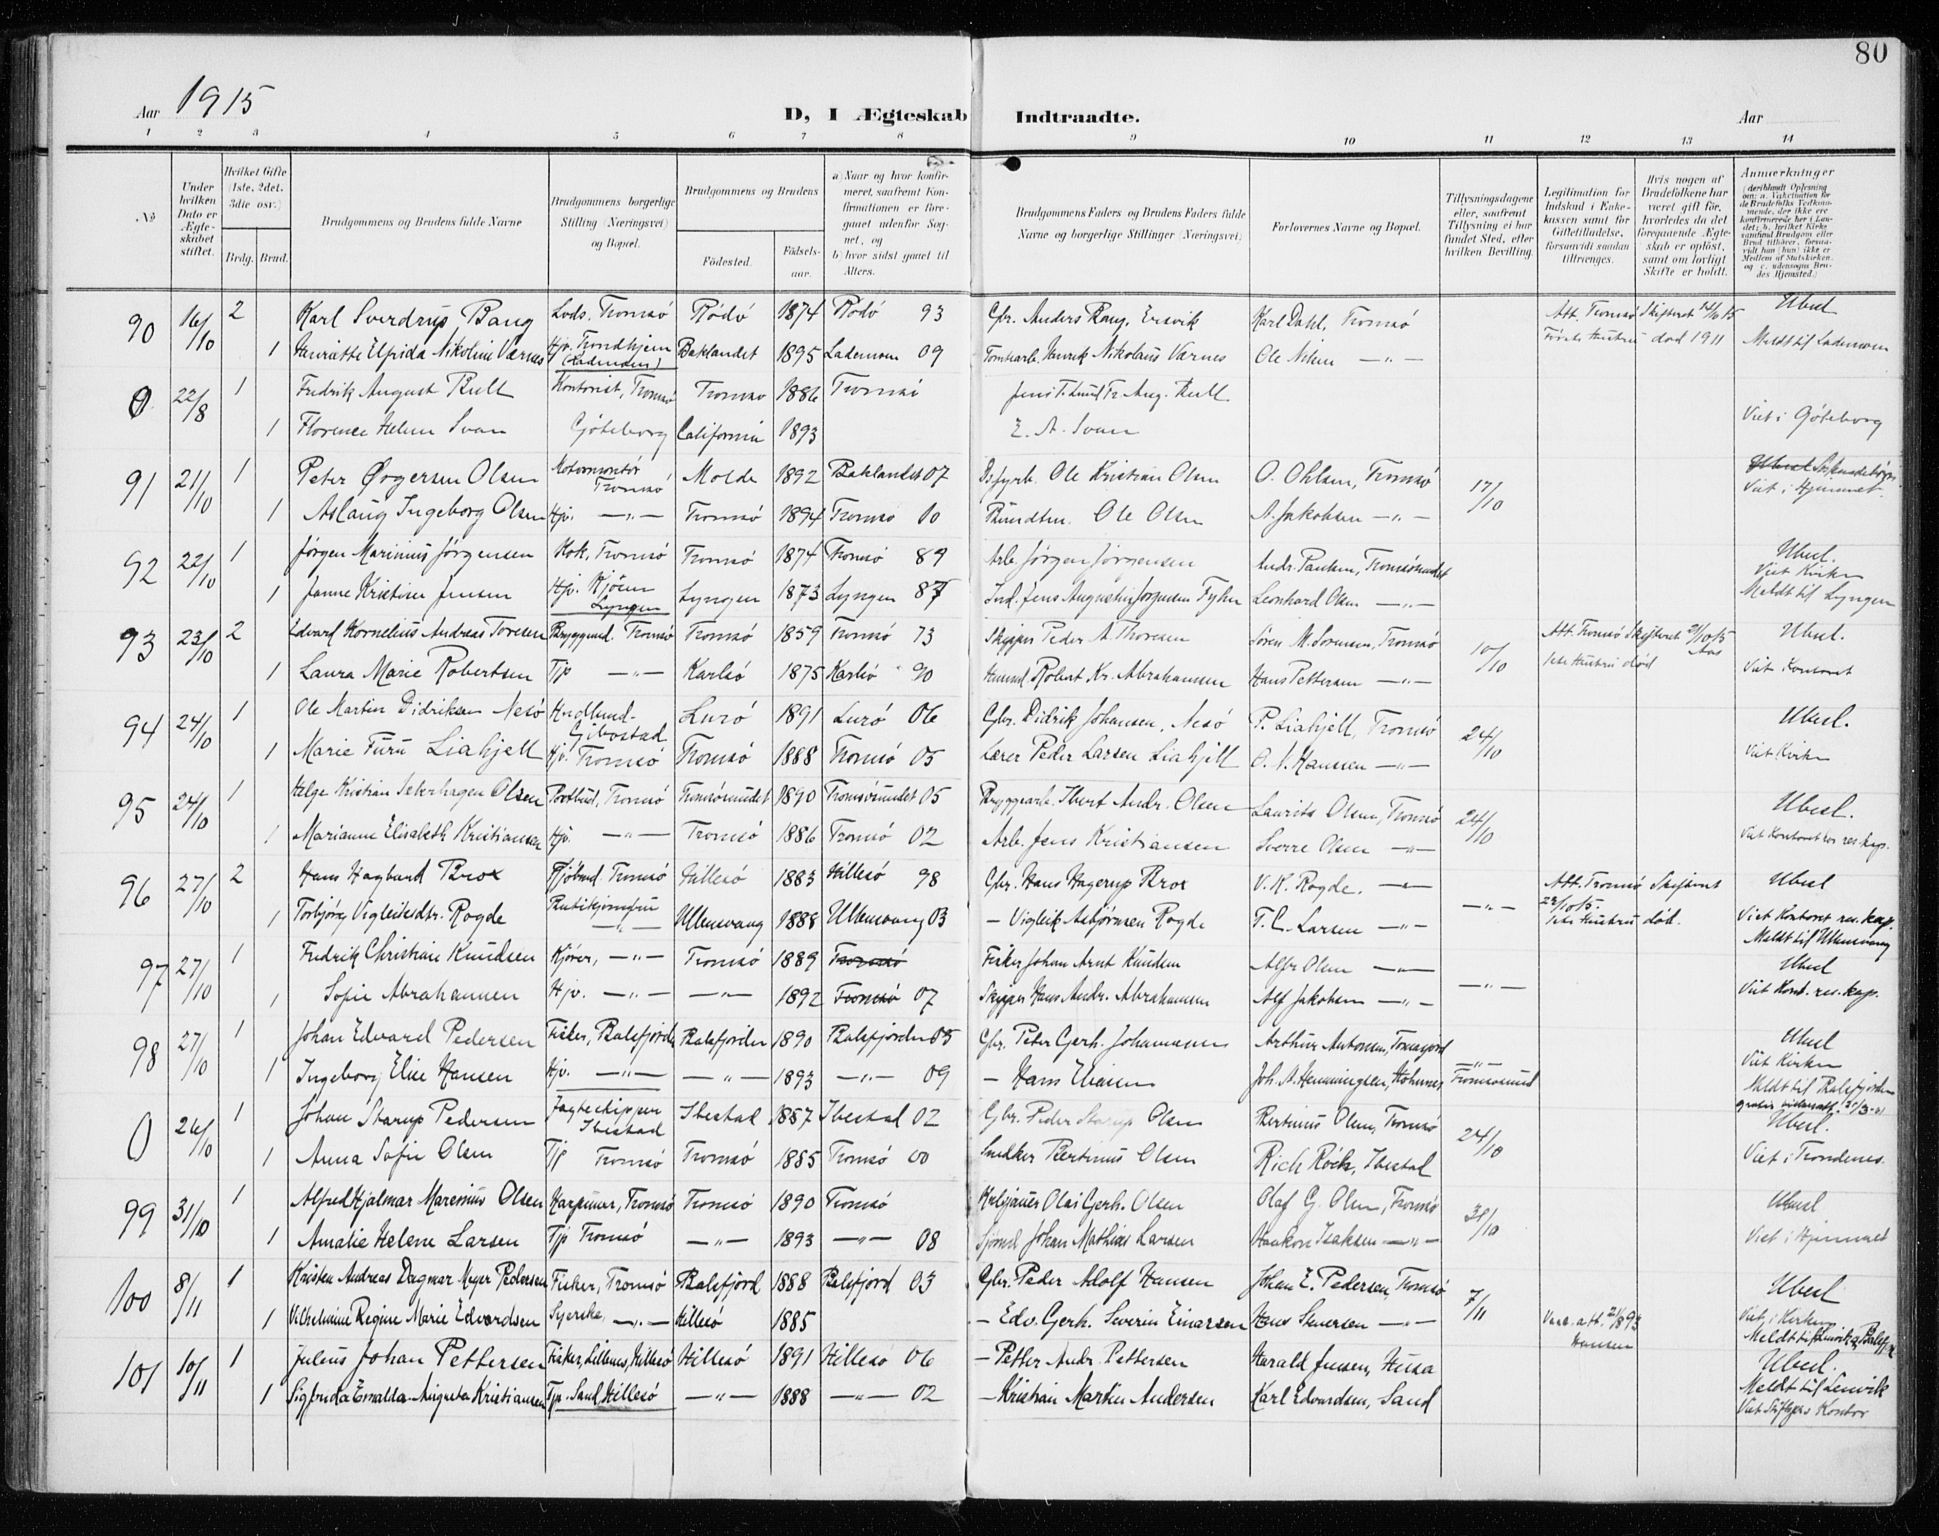 80
Aar 1915
D, I Ægteskab Indtraadte.
Aar
1 2 3 4 5 6 7 8 9 10 11 12 13 14
No
Under hvilken Dato er Ægteskabet stiftet.
Hvilket Gifte (1ste, 2det, 3die osv.)
Brdg. Brud.
Brudgommens og Brudens fulde Navne
Brudgommens borgerlige Stilling (Næringsvei) og Bopæl.
Brudgommens og Brudens
Fødested. Fødselsaar.
a) Naar og hvor konfirmeret, saafremt Konfirmationen er foregaaet udenfor Sognet, og b) hvor sidst gaaet til Alters.
Brudgommens Faders og Brudens Faders fulde Navne og borgerlige Stillinger (Næringsvei)
Forlovernes Navne og Bopæl.
Tillysningsdagene eller, saafremt Tillysning ei har fundet Sted, efter hvilken Bevilling.
Legitimation for Indskud i Enkekassen samt for Giftetilladelse, forsaavidt saadan tiltrænges.
Hvis nogen af Brudefolkene har været gift før, hvorledes da det foregaaende Ægteskab er opløst, samt om lovligt Skifte er holdt.
Anmærkninger
90 16/10 2 Karl Sverdrup Bang Lods, Tromsö Rödö 1874 Rödö 93 Gbr. Anders Bang, Ersvik Karl Dahl, Tromsö Att. Tromsö Skifteret Ubesl
1 Henriette Elfrida Nikoline Værnes Hjv. Trondhjem Baklandet 1895 Lademoen 09 Henrik Nikolaus Værnes Ole Nilsen —"— død 1911 Meldt til Lademoen
0 22/8 1 Fredrik August Bull Kontorist, Tromsö Tromsö 1886 Tromsö Aug. Bull
1 Florence Helen Svan Göteborg California 1893 E. A. Svan Viet i Göteborg
91 21/10 1 Peter Ørgersen Olsen Motormontör Tromsö Molde 1892 Baklandet 07 Ole Kristian Olsen O. Ohlsen, Tromsö 17/10 Viet i Hjemmet
1 Aslaug Ingeborg Olsen Hjv. —"— Tromsö 1894 Tromsö 10 Ole Olsen A. Jakobsen —"—
92 22/10 1 Jörgen Marinius Jörgensen Kok, Tromsö Tromsö 1874 Tromsö 89 Arb. Jörgen Jörgensen Andr. Paulsen, Tromsösundet Ubesl. Viet Kirken
1 Janne Kristine Jensen Hjv. Kjösen Lyngen Lyngen 1873 Lyngen 87 Jens Augustin Jörgensen Leonhard Olsen —"— Meldt til Lyngen
93 23/10 2 Edvard Kornelius Andreas Toresen Bryggemd. Tromsö Tromsö 1859 Tromsö 73 Skipper Peder A. Thoresen Sören M. Sörensen, Tromsö 10/10 Att. Tromsö Skifteret Ubesl.
1 Laura Marie Robertsen Tjp —"— Karlsö 1875 Karlsö 90 Robert Kr. Abrahamsen Hans Pettersen —"— 1ste Hustru död Viet Kontoret
94 24/10 1 Ole Martin Didriksen Nesö Handlend. Gibostad Lurö 1891 Lurö 06 Gbr. Didrik Johansen, Nesö P. Liahjell, Tromsö 24/10 Ubesl.
1 Marie Furu Liahjell Hjv. Tromsö Tromsö 1888 Tromsö 05 Lærer Peder Larsen Liahjell O. A. Hansen —"— Viet Kirken
95 24/10 1 Helge Kristian Seberhagen Olsen Postbud, Tromsö Tromsösundet 1890 Tromsösundet 05 Bryggearb. Ibert Andr. Olsen Laurits Olsen, Tromsö 24/10 Ubesl.
1 Marianne Elisabeth Kristiansen Hjv. —"— Tromsö 1886 Tromsö 02 Arb. Jens Kristiansen Sverre Olsen —"— Viet Kontoret hos res. kap.
96 27/10 2 Hans Hagbard Brox Tromsö Hillesö 1883 Hillesö 98 Gbr. Hans Hagerup Brox V. K. Rogde —"— —"— Att. Tromsö Skifteret Ubesl
1 Torbjörg Vigleiksdtr. Rogde —"— Ullensvang 1888 Ullensvang 03 — Vigleik Asbjörnsen Rogde T. C. Larsen —"— 1ste Hustru död. Viet Kontoret res. kap. Meldt til Ullensvang
97 27/10 1 Fredrik Christian Knudsen Kjörer, —"— Tromsö 1889 Tromsö Fisker Johan Arnt Knudsen Alfr. Olsen —"— —"— Ubesl
1 Sofie Abrahamsen Hjv. —"— —"— 1892 Tromsö 07 Skipper Hans Andr. Abrahamsen Alf Jakobsen —"— Viet Kont. res. kap.
98 27/10 1 Johan Edvard Pedersen Fisker, Balsfjorden Balsfjorden 1890 Balsfjorden 05 Gbr. Peter Gerh. Johannesen Arthur Antonsen, Tomasjord —"— Ubesl Viet Kirken
1 Ingeborg Elise Hansen Hjv. —"— —"— 1893 —"— 09 — Hans Eliasen Joh. A. Henningsen, Tromsösund Meldt til Balsfjorden
0 26/10 1 Johan Starup Pedersen Jagteskipper Ibestad Ibestad 1887 Ibestad 02 Gbr. Peder Starup Olsen Bertinus Olsen, Tromsö 24/10 Ubesl.
1 Anna Sofie Olsen Tjp Tromsö Tromsö 1885 Tromsö 00 Snedker Bertinus Olsen Rich Röch, Ibestad Viet i Trondenes.
99 31/10 1 Alfred Hjalmar Marenius Olsen Harpuner, Tromsö Tromsö 1890 Tromsö Olai Gerh. Olsen Olaf G. Olsen, Tromsö 31/10 Ubesl
1 Amalie Helene Larsen Tjp Tromsö —"— 1893 —"— 08 Sjömd Johan Mathias Larsen Haakon Isaksen —"— Viet i Hjemmet
100 8/11 1 Kristen Andreas Dagmar Meyer Pedersen Fisker, Tromsö Balsfjord 1888 Balsfjord 03 Gbr. Peder Adolf Hansen Johan E. Pedersen, Tromsö 7/11 Ubesl
1 Vilhelmine Regine Marie Edvardsen Syerske, —"— Hillesö 1885 — Edv. Gerh. Severin Einarsen Hans Stenersen —"— Vacc. att. 21/8 93 Hansen Viet i Kirken
101 10/11 1 Julius Johan Pettersen Fisker, Lillenes, Hillesö Hillesö 1891 Hillesö 06 — Petter Andr. Pettersen Harald Jensen, Husa Ubesl.
1 Sigfrida Esralda Augusta Kristiansen Tjp. Sand Hillesö —"— 1888 —"— 02 — Kristian Martin Andersen Karl Edvardsen, Sand Meldt til Lenvik
Kontor